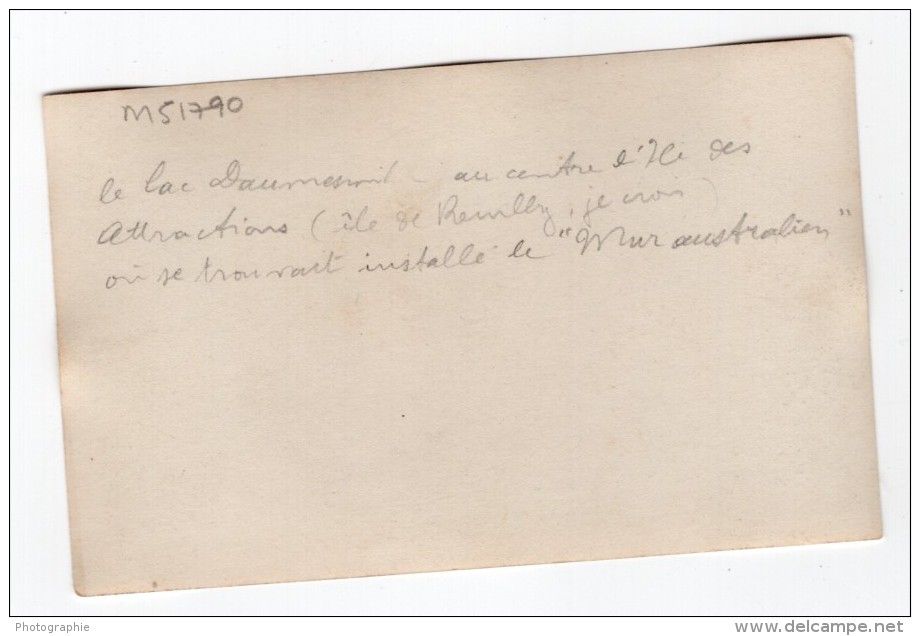 M51790
le lac Daumesnil – au centre l'Ile des
Attractions (île de Reuilly, je crois)
où se trouvait installé le "Mur australien"
Photographie
www.delcampe.net